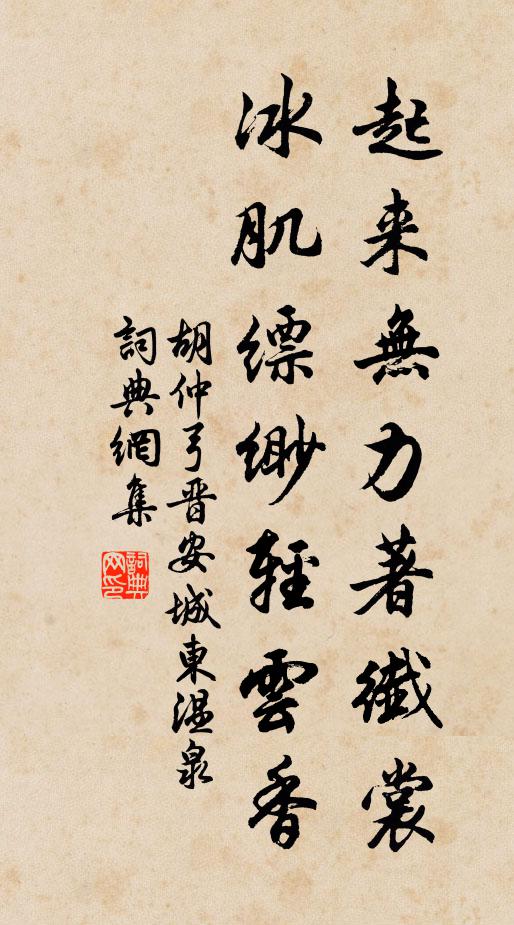 起来無力著纖裳
冰肌縹緲輕雲香
胡仲弓晋安城東温泉
詞典網集
詞典
网印